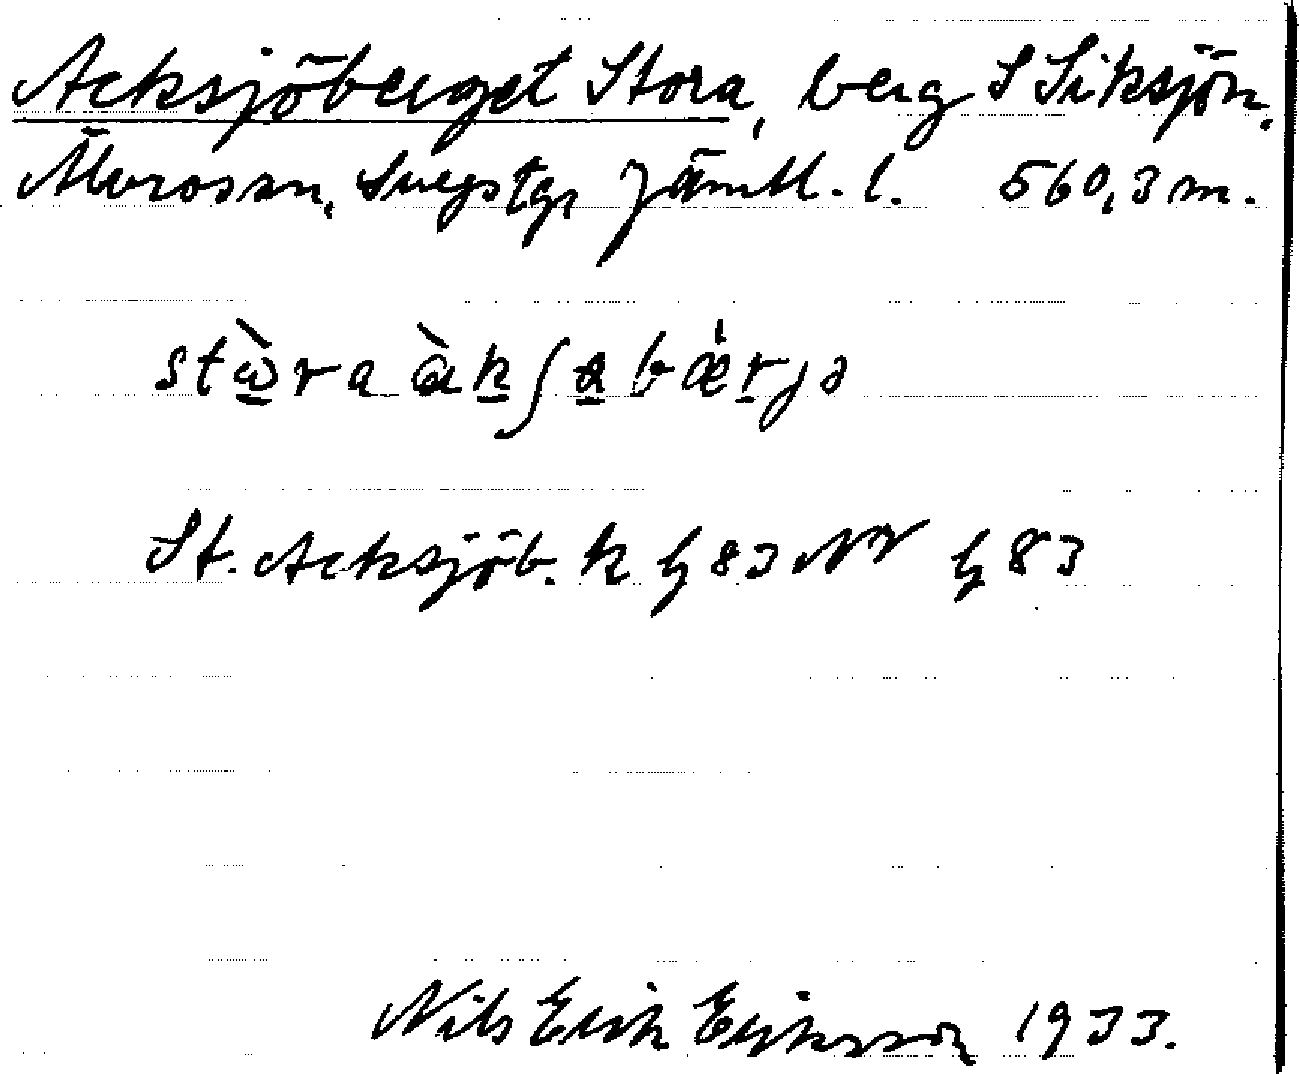 Acksjöberget Stora, berg S Siksjön,
Älvrossn, Svegs tgs Jämtl. l. 560,3 m.
stɷ̀ra àkʃabǽrjə
St. Acksjöb. k h 83 NV h 83
Nils Erik Eriksson 1933.